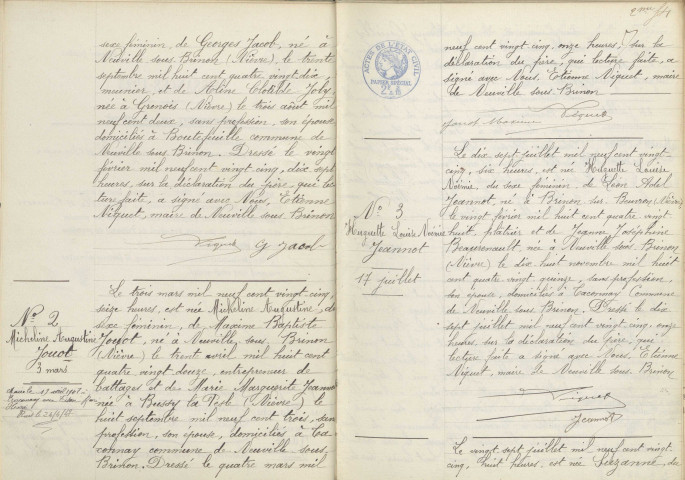 sexe féminin, de Georges Jacob, né à
Neuville sous Brinon (Nièvre), le trente
septembre mil huit cent quatre vingt dix
meunier, et de Hélène Clotilde Joby
née à Grenois (Nièvre) le trois août mil
neuf cent deux, sans profession, son épouse
domiciliés à Boutefeuille commune de
Neuville sous Brinon. Dressé le vingt
février mil neuf cent vingt cinq, dix sept
heures, sur la déclaration du père, qui lec-
ture faite, a signé avec Nous, Etienne
Niquet, maire de Neuville sous Brinon
Niquet G Jacob
N° 2
Micheline Augustine
Jouot
3 mars
Le trois mars mil neuf cent vingt cinq,
seize heures, est née Micheline Augustine, du
sexe féminin, de Maxime Baptiste
Jouot, né à Neuville sous Brinon
(Nièvre) le trent avril mil huit cent
quatre vingt douze, entrepreneur de
battages et de Marie Marguerite Jeanne
née à Bussy la Pesle (Nièvre) le
huit septembre mil neuf cent trois, sans
profession, son épouse, domiciliés à Ca-
connay commune de Neuville sous
Brinon. Dressé le quatre mars mil
2
ACTES DE L'ETAT CIVIL
neuf cent vingt cinq, onze heures, sur la
déclaration du père, qui lecture faite, a
signé avec Nous, Etienne Niquet, maire
de Neuville sous Brinon
Jouot Maxime Niquet
N° 3
Huguette Louise Noémie
Jeannot
17 juillet
Le dix sept juillet mil neuf cent vingt
cinq, six heures, est née Huguette Louise
Noémie, du sexe féminin, de Léon Adel
Jeannot, né à Brinon sur Beuvron (Nièvre)
le vingt février mil huit cent quatre vingt
huit, plâtrier et de Jeanne Joséphine
Beaurenault, née à Neuville sous Brinon
(Nièvre) le dix huit novembre mil huit
cent quatre vingt quinze sans profession,
son épouse, domiciliés à Caconnay Commune
de Neuville sous Brinon. Dressé le dix
sept juillet mil neuf cent vingt cinq, onze
heures, sur la déclaration du père, qui
lecture faite a signé avec Nous, Etienne
Niquet, maire de Neuville sous Brinon
Niquet
Jeannot
Le vingt sept juillet mil neuf cent vingt
cinq, huit heures, est née Suzanne, du